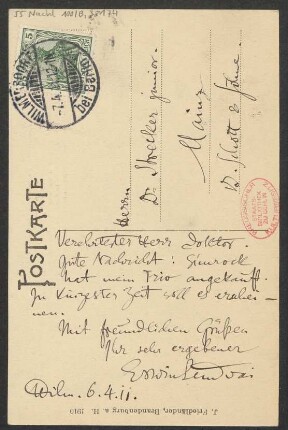 55 Nachl 100/B,
5
BERLIN
WILMERSDORF
POSTKARTE
Herrn
Dr Strecker junior.
Mainz
B. Schott's Söhne.
Verehrtester Herr Doktor.
Gute Nachricht: Simrock
hat mein Trio angekauft.
In kürzester Zeit soll es erschei-
nen.
Mit freundlichen Grüßen
Ihr sehr ergebener
Erwin Lendvai
Wilm. 6.4.11.
J. Friedländer, Brandenburg a. H. 1910